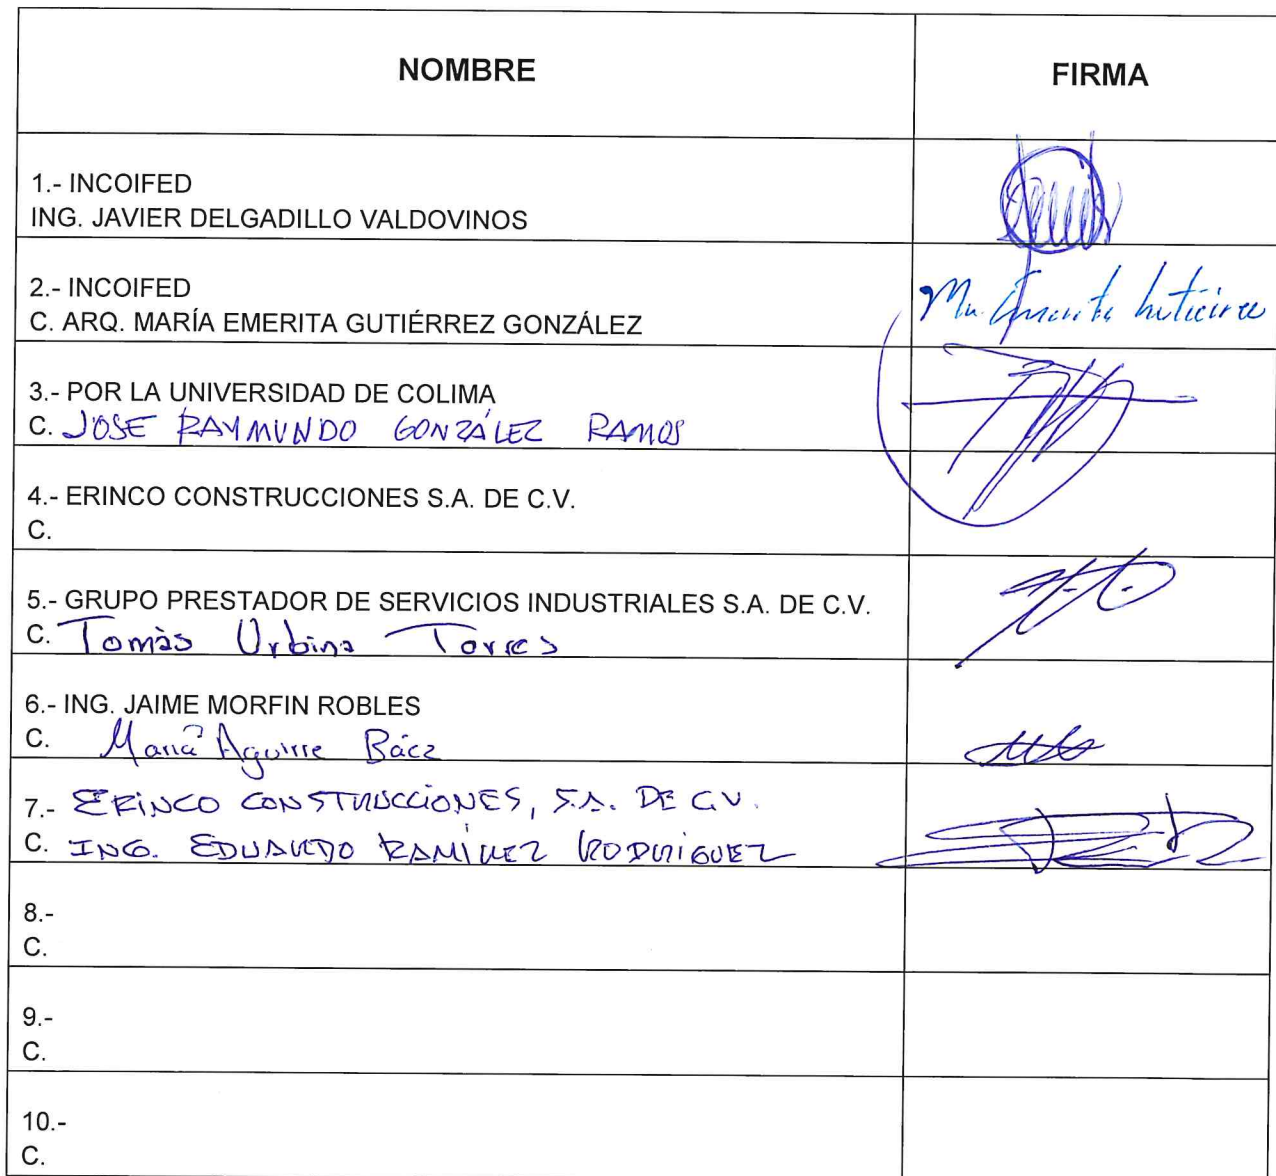 NOMBRE
FIRMA
1.- INCOIFED
ING. JAVIER DELGADILLO VALDOVINOS
2.- INCOIFED
C. ARQ. MARÍA EMERITA GUTIÉRREZ GONZÁLEZ
Ma. Emerita Gutiérrez
3.- POR LA UNIVERSIDAD DE COLIMA
C. JOSE RAYMUNDO GONZÁLEZ RAMOS
4.- ERINCO CONSTRUCCIONES S.A. DE C.V.
C.
5.- GRUPO PRESTADOR DE SERVICIOS INDUSTRIALES S.A. DE C.V.
C. Tomàs Urbina Torres
6.- ING. JAIME MORFIN ROBLES
C. María Aguirre Báez
7.- ERINCO CONSTRUCCIONES, S.A. DE C.V.
C. ING. EDUARDO RAMÍREZ RODRIGUEZ
8.-
C.
9.-
C.
10.-
C.